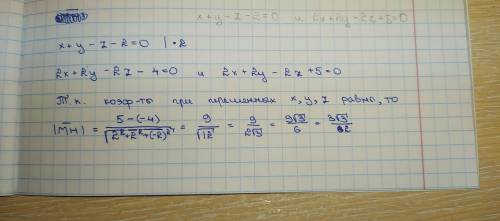 x+y-z-2=0 и 2x+2y-2z+5=0
x+y-z-2=0 | •2
2x+2y-2z-4=0 и 2x+2y-2z+5=0
Т.к. коэф-ты при переменных x, y, z равны, то
|MH| = 5-(-4)/√(2²+2²+(-2)²) = 9/√12 = 9/2√3 = 9√3/6 = 3√3/2